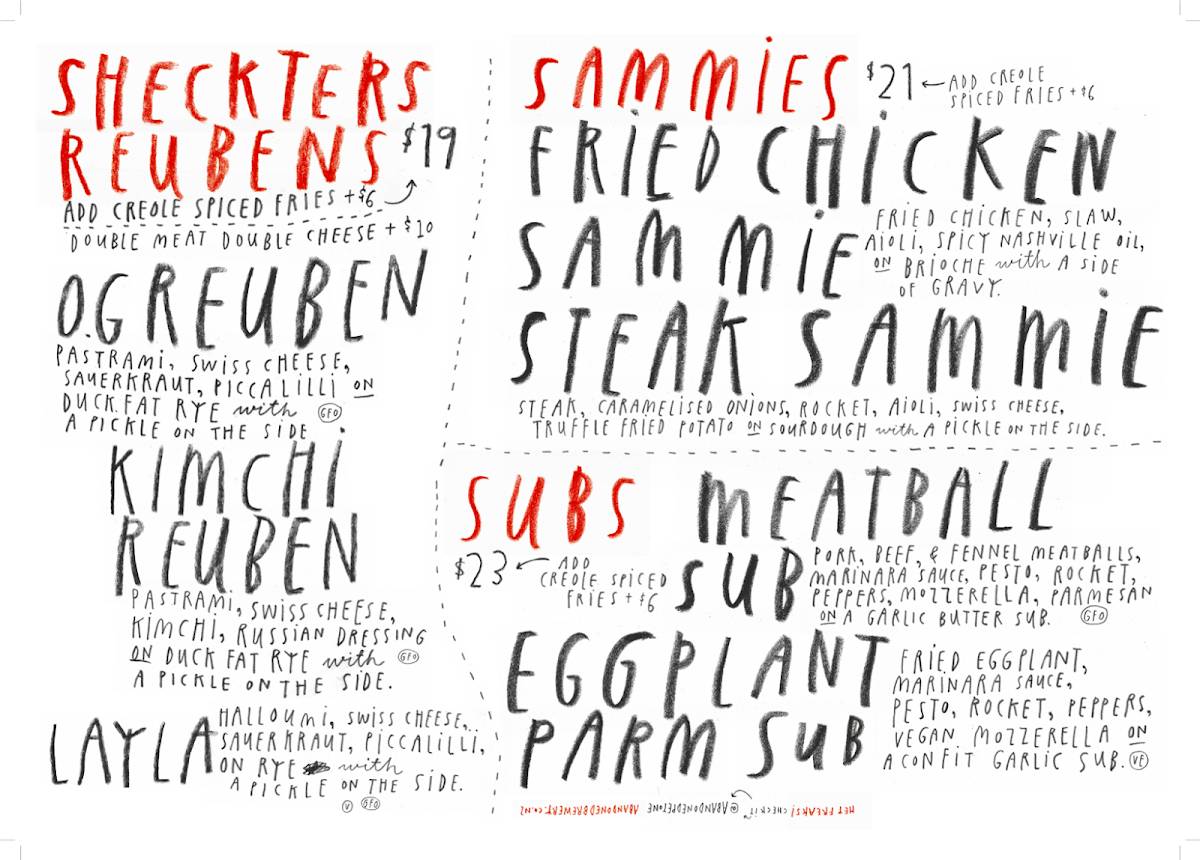 SHECKTERS
REUBENS $19
ADD CREOLE SPICED FRIES + $6
DOUBLE MEAT DOUBLE CHEESE + $10
O.G REUBEN
PASTRAMi, SWISS CHEESE,
SAUERKRAUT, PICCALILLI ON
DUCK FAT RYE with GFO
A PICKLE ON THE SIDE
KIMCHI
REUBEN
PASTRAMI, SWISS CHEESE,
KIMCHI, RUSSIAN DRESSING
ON DUCK FAT RYE with GFO
A PICKLE ON THE SIDE.
LAYLA
HALLOUMI, SWISS CHEESE,
SAUERKRAUT, PICCALILLI,
ON RYE with
A PICKLE ON THE SIDE.
V GFO
SAMMiES $21
ADD CREOLE
SPICED FRIES + $6
FRiED CHiCKEN
SAMMiE
FRIED CHICKEN, SLAW,
AIOLI, SPICY NASHVILLE OIL,
ON BRIOCHE with A SIDE
OF GRAVY.
STEAK SAMMiE
STEAK, CARAMELISED ONIONS, ROCKET, AIOLI, SWISS CHEESE,
TRUFFLE FRIED POTATO ON SOURDOUGH with A PICKLE ON THE SIDE.
SUBS
$23
ADD
CREOLE SPICED
FRIES + $6
MEATBALL
SUB
PORK, BEEF, & FENNEL MEATBALLS,
MARINARA SAUCE, PESTO, ROCKET,
PEPPERS, MOZZERELLA, PARMESAN
ON A GARLIC BUTTER SUB. GFO
EGGPLANT
PARM SUB
FRIED EGGPLANT,
MARINARA SAUCE,
PESTO, ROCKET, PEPPERS,
VEGAN MOZZERELLA ON
A CONFIT GARLIC SUB. VE
HEY FREAKS! CHECK IT @ABANDONEDPETONE ABANDONEDBREWERY.CO.NZ